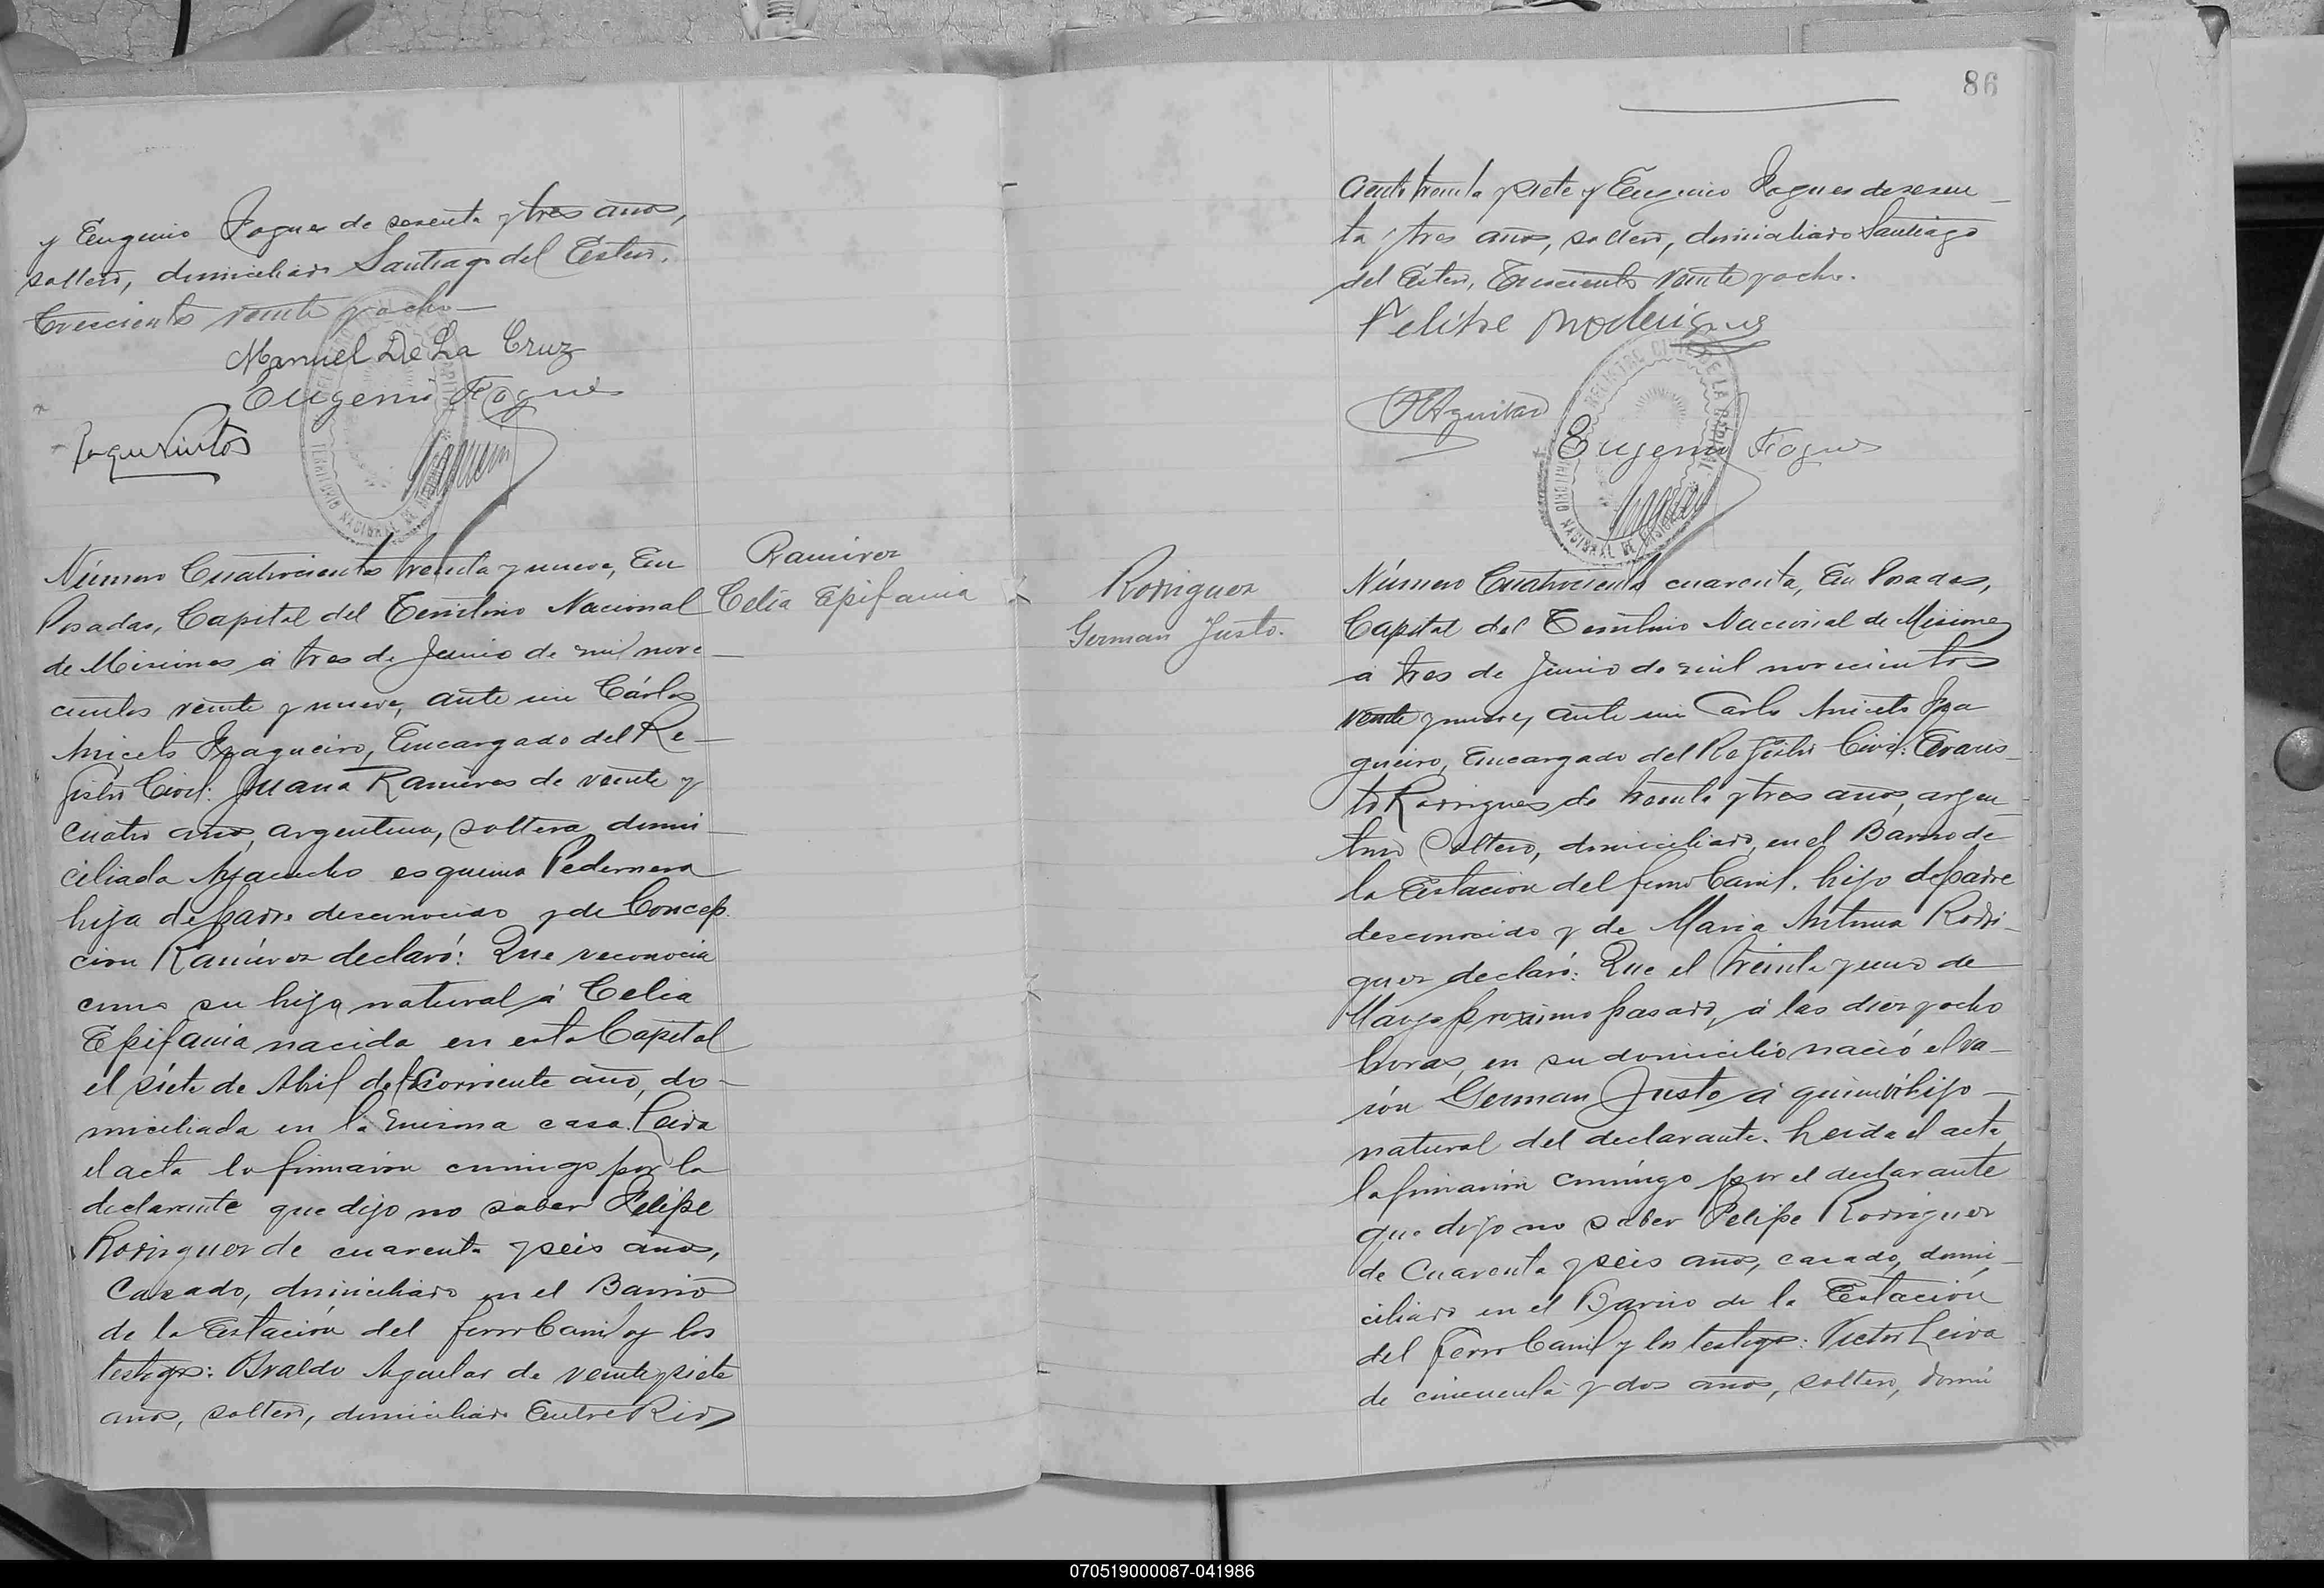 y Eugenio Fogues de sesenta y tres años,
soltero, domiciliado Santiago del Estero.
Trescientos veinte y ocho—
Manuel De La Cruz
Eugenio Fogues
TERRITORIO NACIONAL DE MISIONES
Número Cuatrocientos treinta y nueve, En
Posadas, Capital del Territorio Nacional
de Misiones á tres de Junio de mil nove—
cientos veinte y nueve, ante mi Cárlos
Aniceto Izagueiro, Encargado del Re—
gistro Civil: Juana Ramirez de veinte y
cuatro años, argentina, soltera domi—
ciliada Ayacucho esquina Pedernera
hija de padre desconocido y de Concep-
cion Ramírez declaró: Que reconocia
como su hija natural á Celia
Epifania nacida en esta Capital
el siete de Abril del corriente año, do—
miciliada en la misma casa. Leida
el acta la firmaron conmigo por la
declarante que dijo no saber Felipe
Rodriguez de cuarenta y seis años,
casado, domiciliado en el Barrio
de la Estación del ferro Carril y los
testigos: Osvaldo Aguilar de veinte y siete
años, soltero, domiciliado Entre Rios
Ramirez
Celia Epifania
86
ciento treinta y siete y Eugenio Fogues de sesen—
ta y tres años, soltero, domiciliado Santiago
del Estero, Trescientos veinte y ocho.
Felipe Rodriguez
OAguilar
REGISTRO CIVIL DE LA CAPITAL
Eugenio Fogues
TERRITORIO NACIONAL DE MISIONES
Rodriguez
German Justo.
Número Cuatrocientos cuarenta, En Posadas,
Capital del Territorio Nacional de Misiones
a tres de Junio de mil novecientos
veinte y nueve, ante mi Carlos Aniceto Iza
gueiro, Encargado del Registro Civil: Evaris—
to Rodrigues de treinta y tres años, argen—
tino soltero, domiciliado, en el Barrio de
la Estacion del ferro Carril. hijo de padre
desconocido y de Maria Antonia Rodri—
guez declaró: Que el treinta y uno de
Mayo próximo pasado, á las diez y ocho
horas, en su domicilio nació el va—
rón German Justo á quien vi hijo—
natural del declarante. Leida el acta
la firmaron conmigo por el declarante
que dijo no saber Felipe Rodriguez
de Cuarenta y seis años, casado, domi—
ciliado en el Barrio de la Estación
del Ferro Carril y los testigos: Victor Leiva
de cincuenta y dos años, soltero, domi
070519000087-041986